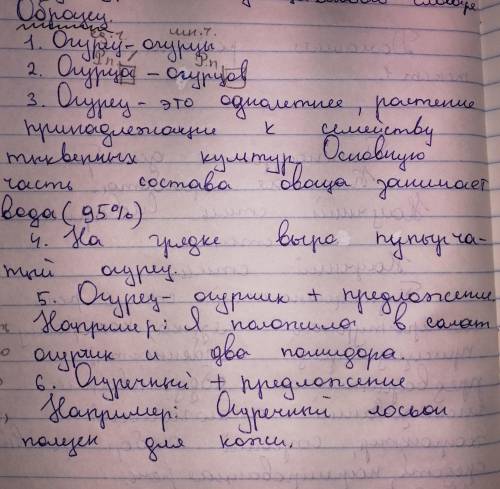 Образец.
ед.ч. мн.ч.
1. Огурец - огурцы
Р.п. Р.п.
2. Огурца - огурцов
3. Огурец - это однолетнее, растение
принадлежащие к семейству
тыквенных культур. Основную
часть состава овоща занимает
вода (95%)
4. На грядке вырос пупырча-
тый огурец.
5. Огурец - огурчик + предложение
Например: Я положила в салат
огурчик и два помидора.
6. Огуречный + предложение
Например: Огуречный лосьон
полезен для кожи.